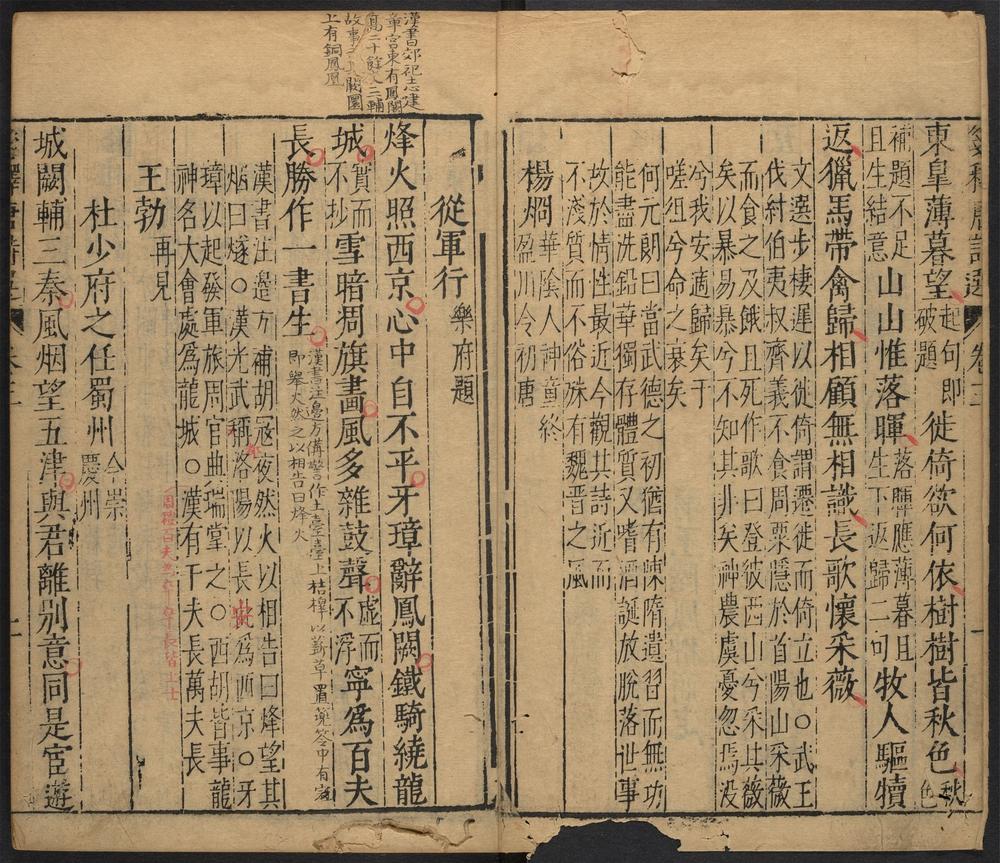 東皐薄暮望起句即破題徙倚欲何依樹樹皆秋色秋色
補題不足且生結意山山惟落暉落暉應薄暮且生下返歸二句牧人驅犢
返獵馬帶禽歸相顧無相識長歌懷采薇
文選步棲遲以徙倚謂遷徙而倚立也○武王
伐紂伯夷叔齊義不食周粟隱於首陽山采薇
而食之及餓且死作歌曰登彼西山兮采其薇
矣以暴易暴兮不知其非矣神農虞憂忽焉没
兮我安適歸矣于
嗟徂兮命之衰矣
何元朗曰當武德之初猶有陳隋遺習而無功
能盡洗鉛華獨存體質又嗜酒誕放脫落世事
故於情性最近今觀其詩近而
不淺質而不俗殊有魏晋之風
楊烱華陰人神童終盈川令初唐
漢書郊祀志建
章宮東有鳳闕
高二十餘丈三輔
故事
上有銅鳳凰
從軍行樂府題
烽火照西京心中自不平牙璋辭鳳闕鐵騎繞龍
城實而不抄雪暗凋旗畫風多雜鼓聲虛而不浮寧爲百夫
長勝作一書生漢書注邊方備警作土臺臺上桔橰以薪草置
即舉火然之以相告曰烽火
漢書注邊方補胡冦夜然火以相告曰烽望其
烟曰燧○漢光武稱洛陽以長安爲西京○牙
璋以起發軍旅周官典瑞掌之○西胡皆事龍
神名大會處爲龍城○漢有千夫長萬夫長
王勃再見
杜少府之任蜀州今崇慶州
城闕輔三秦風烟望五津與君離別意同是宦遊